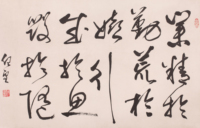 業精於
勤荒於
嬉行
成於思
毀於隨